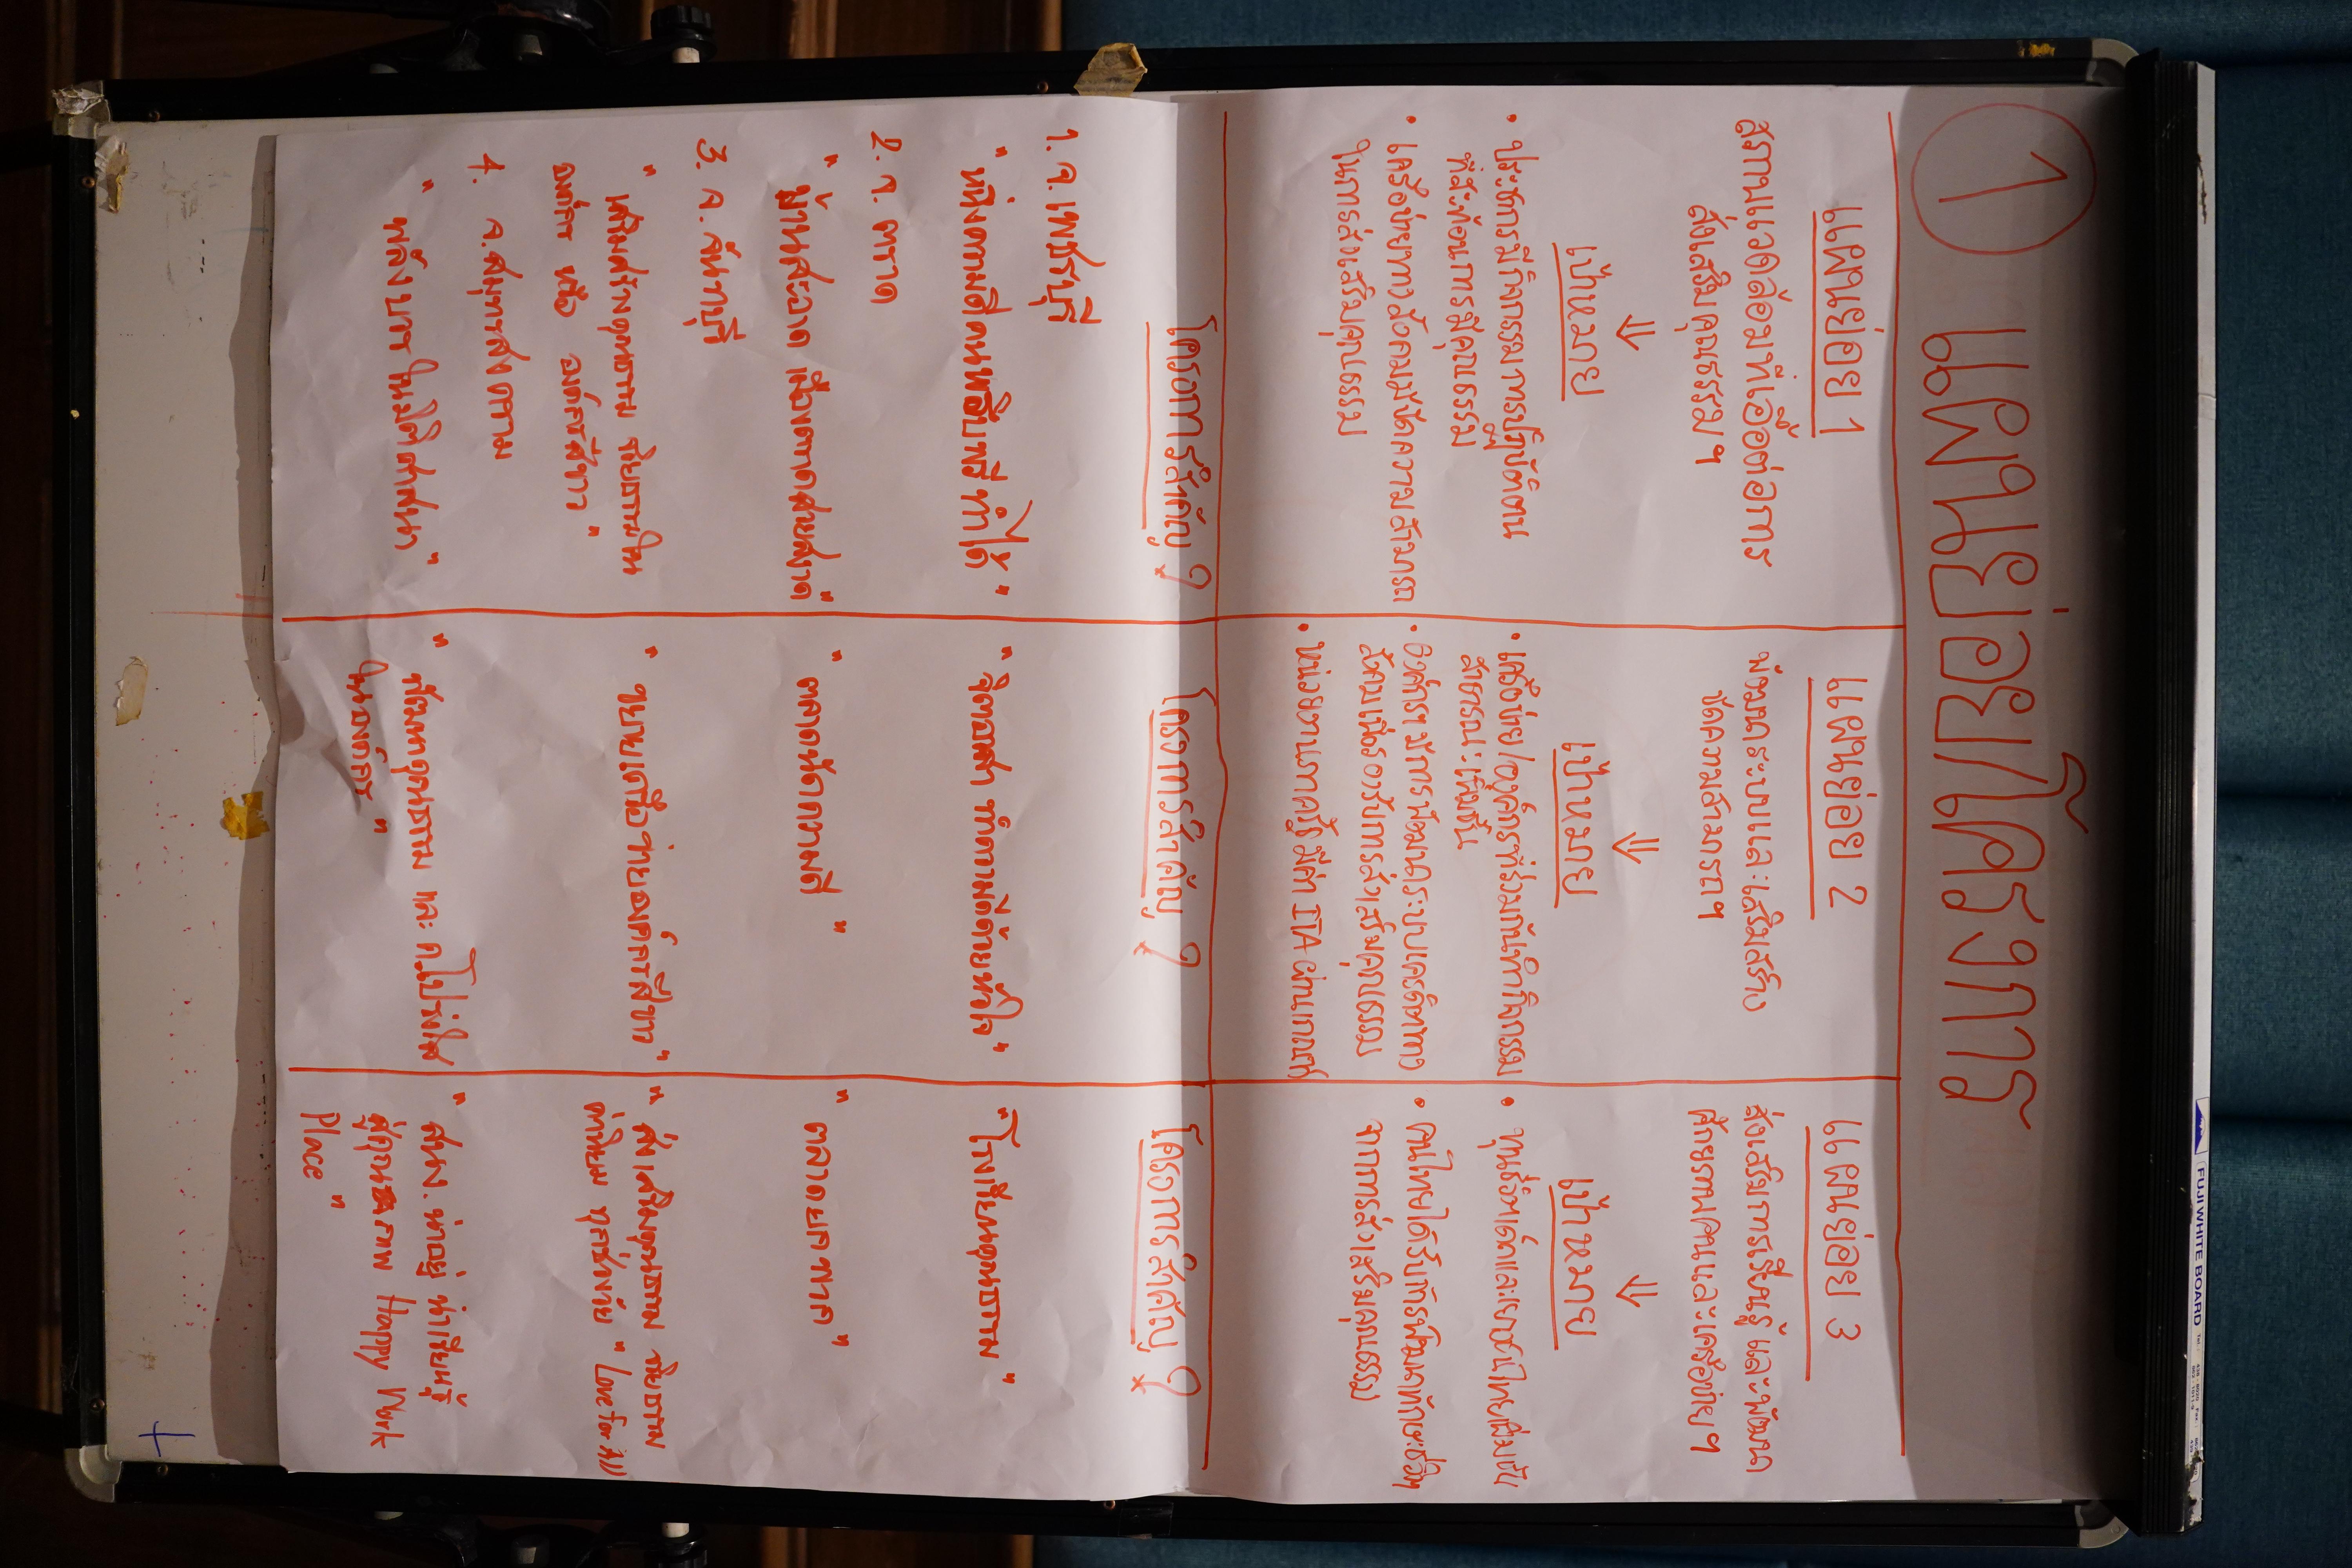 1 แผนย่อย/โครงการ
แผนย่อย 1
สภาพแวดล้อมที่เอื้อต่อการ
ส่งเสริมคุณธรรมฯ
⇓
เป้าหมาย
• ประชากรมีกิจกรรมการปฏิบัติตน
ที่สะท้อนการมีคุณธรรม
• เครือข่ายทางสังคมมีขีดความสามารถ
ในการส่งเสริมคุณธรรม
แผนย่อย 2
พัฒนาระบบและเสริมสร้าง
ขีดความสามารถฯ
⇓
เป้าหมาย
• เครือข่าย/องค์กรที่ร่วมกันทำกิจกรรม
สาธารณะเพิ่มขึ้น
• มีการพัฒนาระบบเครดิตทาง
สังคมเพื่อรองรับการส่งเสริมคุณธรรม
• หน่วยงานภาครัฐ มีค่า ITA ผ่านเกณฑ์
แผนย่อย 3
ส่งเสริมการเรียนรู้ และพัฒนา
ศักยภาพคนและเครือข่ายฯ
⇓
เป้าหมาย
• ทุนชีวิตเด็กและเยาวชนไทยเพิ่มขึ้น
• คนไทยได้รับการพัฒนาทักษะชีวิตฯ
จากการส่งเสริมคุณธรรม
โครงการสำคัญ ?
1. จ. เพชรบุรี
" หนึ่งความดีคนพริบพรี ทำได้ "
2. จ. ตราด
" บ้านสะอาด เมืองตราดสวยสงาด "
3. จ. จันทบุรี
" เสริมสร้างคุณธรรม จริยธรรมใน
องค์กร หรือ องค์กรสีขาว "
4. จ. สมุทรสงคราม
" พลังบวร ในมิติศาสนา "
โครงการสำคัญ ?
" จิตอาสา ทำความดีด้วยหัวใจ "
" ตลาดนัดความดี "
" ขยายเครือข่ายองค์กรสีขาว "
" ชมรมคุณธรรม และ ค.โปร่งใส
ในองค์กร "
โครงการสำคัญ ?
" โรงเรียนคุณธรรม "
" ตลาดยศพาด "
" ส่งเสริมคุณธรรม จริยธรรม
ค่านิยม ทุกช่วงวัย " Love for All
" สนง. น่าอยู่ น่าเรียนรู้
สู่คุณภาพ Happy Work
Place "
FUJI WHITE BOARD